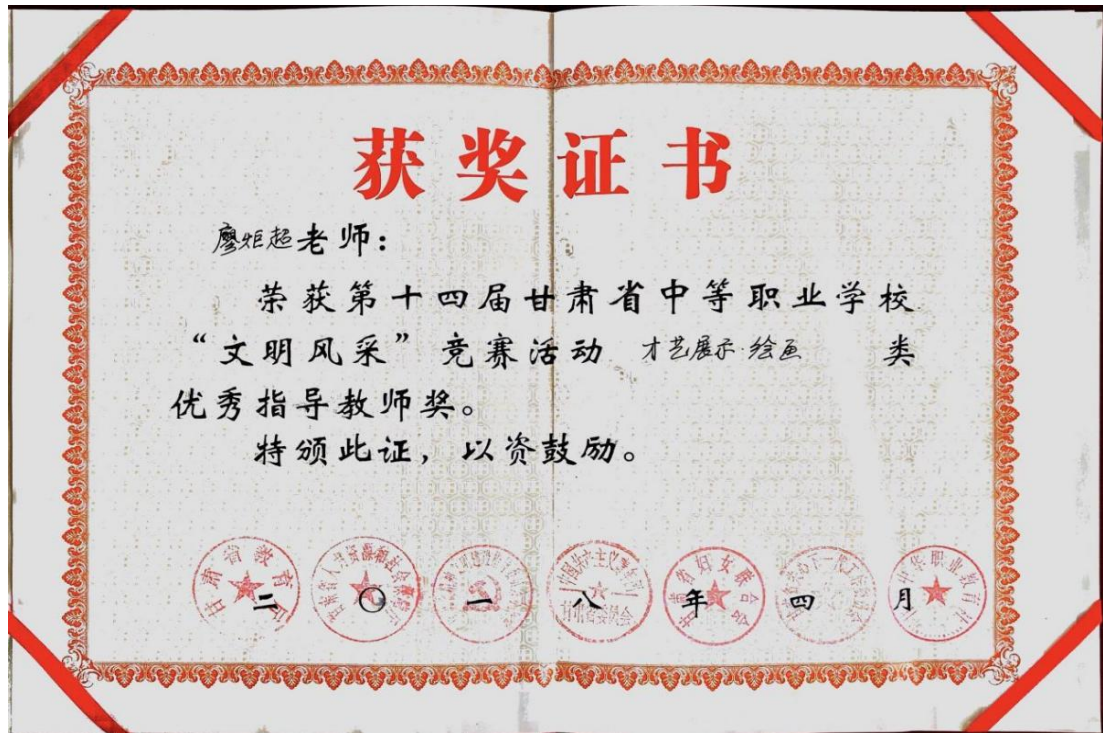 获奖证书
廖炬超老师：
荣获第十四届甘肃省中等职业学校
“文明风采”竞赛活动 才艺展示·绘画 类
优秀指导教师奖。
特颁此证，以资鼓励。
二〇一八年四月
甘肃省教育厅
甘肃省妇女联合会